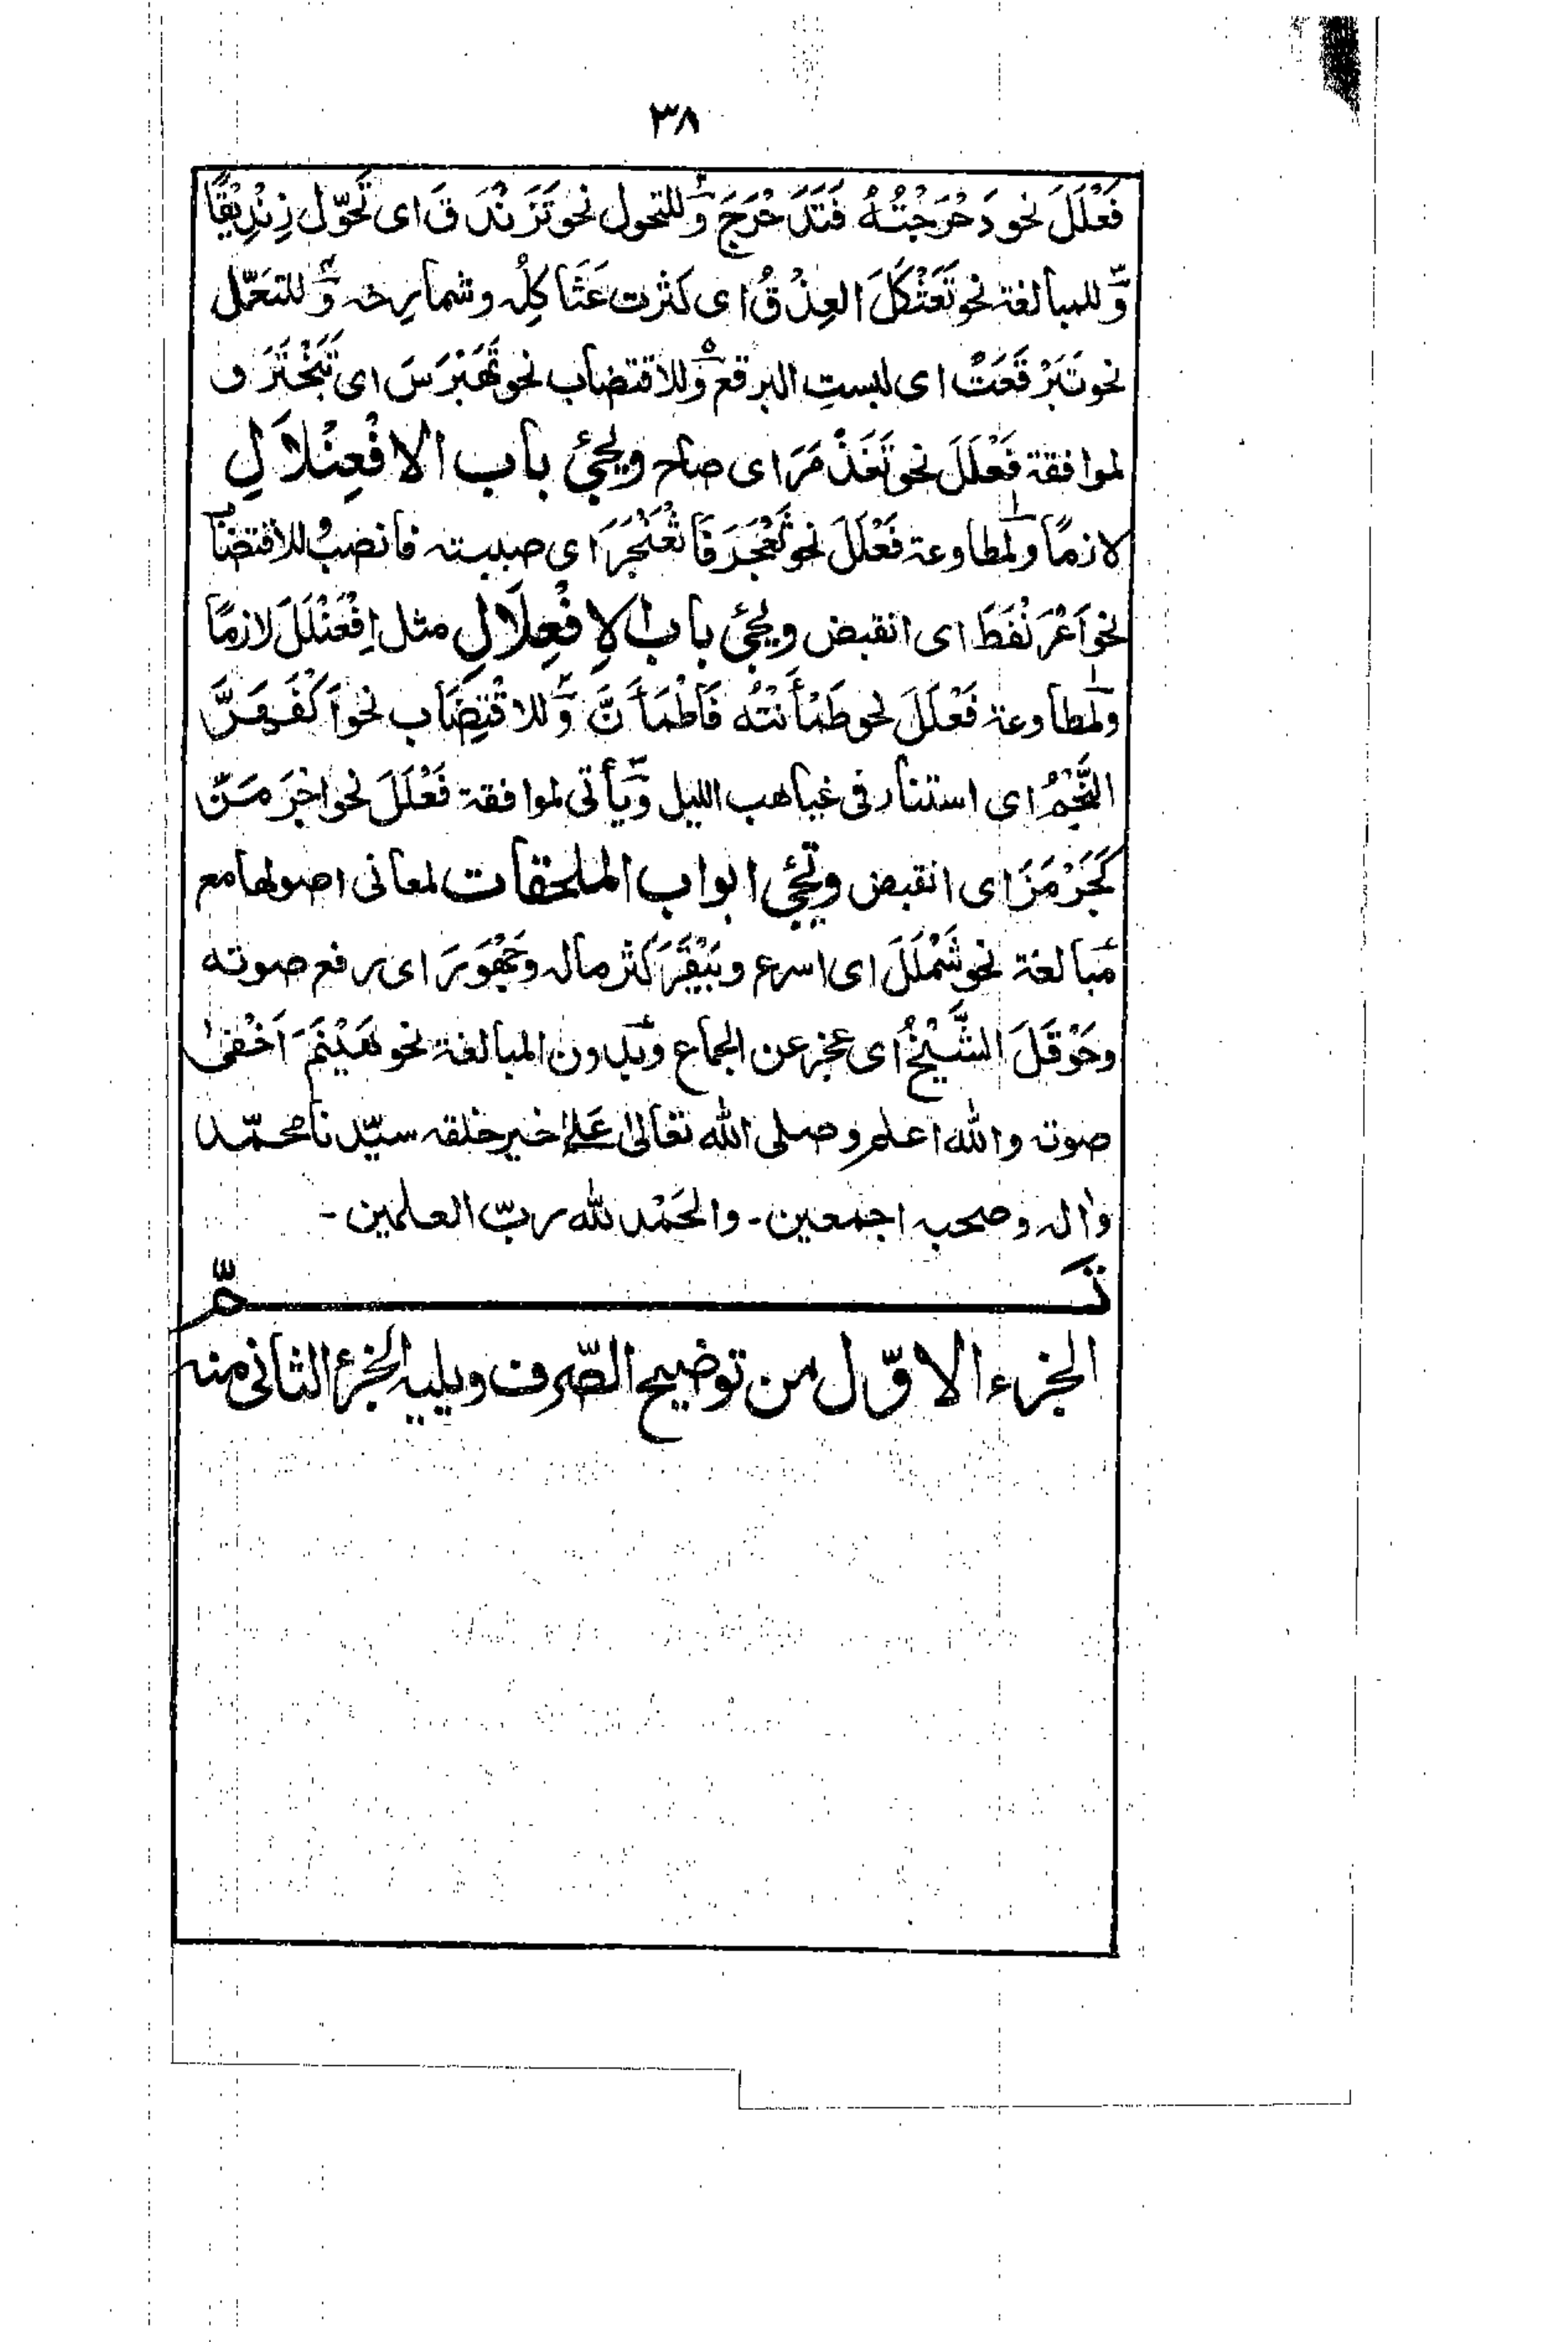 ٣٨
فَعْلَلَ نحو دَحْرَجْتُهُ فَتَدَحْرَجَ وَّللتحول نحو تَزَنْدَقَ ای تَحَوّل زِنْدِیْقًا
وَّللمبالغة نحو تَعَثْكَلَ العِذْقُ ای کثرت عَثَاکِلُه وشماریخه وَّللتعَمّل
نحو تَبَرْقَعَتْ ای لبستِ البرقع وَّللاقتضاب نحو تَهَبْرَسَ ای تَبَخْتَرَ و
لموافقة فَعْلَلَ نحو تَغَذْمَرَ ای صاح ویجیٔ باب الافْعِنْلَالِ
لازمًا ولمطاوعة فَعْلَلَ نحو ثَعْجَرَ فَاثْعَنْجَرَ ای صببته فانصبّ وللاقتضاب
نحو اَعْرَنْفَطَ ای انقبض ویجیٔ باب الاِفْعِلَالِ مثل اِفْعَنْلَلَ لازمًا
ولمطاوعة فَعْلَلَ نحو طَمْأَنْتُه فَاطْمَأَنَّ وَّللاقْتِضَاب نحو اَکْفَهَرَّ
النَّجْمُ ای استنار فی غیاهب اللیل وَّیأتی لموافقة فَعْلَلَ نحو اجْرَمَزَّ
کَجَرْمَزَ ای انقبض وتجیٔ ابواب الملحقات لمعانی اصولها مع
مبالغة نحو شَمْلَلَ ای اسرع وبَیْقَرَ کثر ماله وجَهْوَرَ ای رفع صوته
وحَوْقَلَ الشَّیْخُ ای عجز عن الجماع وَّبدون المبالغة نحو هَیْنَمَ اَخْفیٰ
صوته والله اعلم وصلی الله تعالیٰ عَلیٰ خیر خلقه سیّدنا محمّد
واٰله وصحبه اجمعین - والحَمْد لله ربّ العلمین -
تَـــــــمّ
الجزء الاوّل من توضیح الصّرف ویلیه الجزء الثانی منه